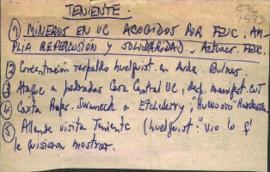 TENIENTE
C76
1973
① MINEROS EN UC ACOGIDOS POR FEUC; AM-
PLIA REPERCUSIÓN Y SOLIDARIDAD.
② Concentración respaldo huelguist. en Avda. Bulnes
③ Ataque a pedradas Casa Central UC; desp. manifest. CUT
④ Carta Profes. a Etcheberry;
⑤ Allende visita Teniente (huelguist. "Vio lo q'
le quisieron mostrar.